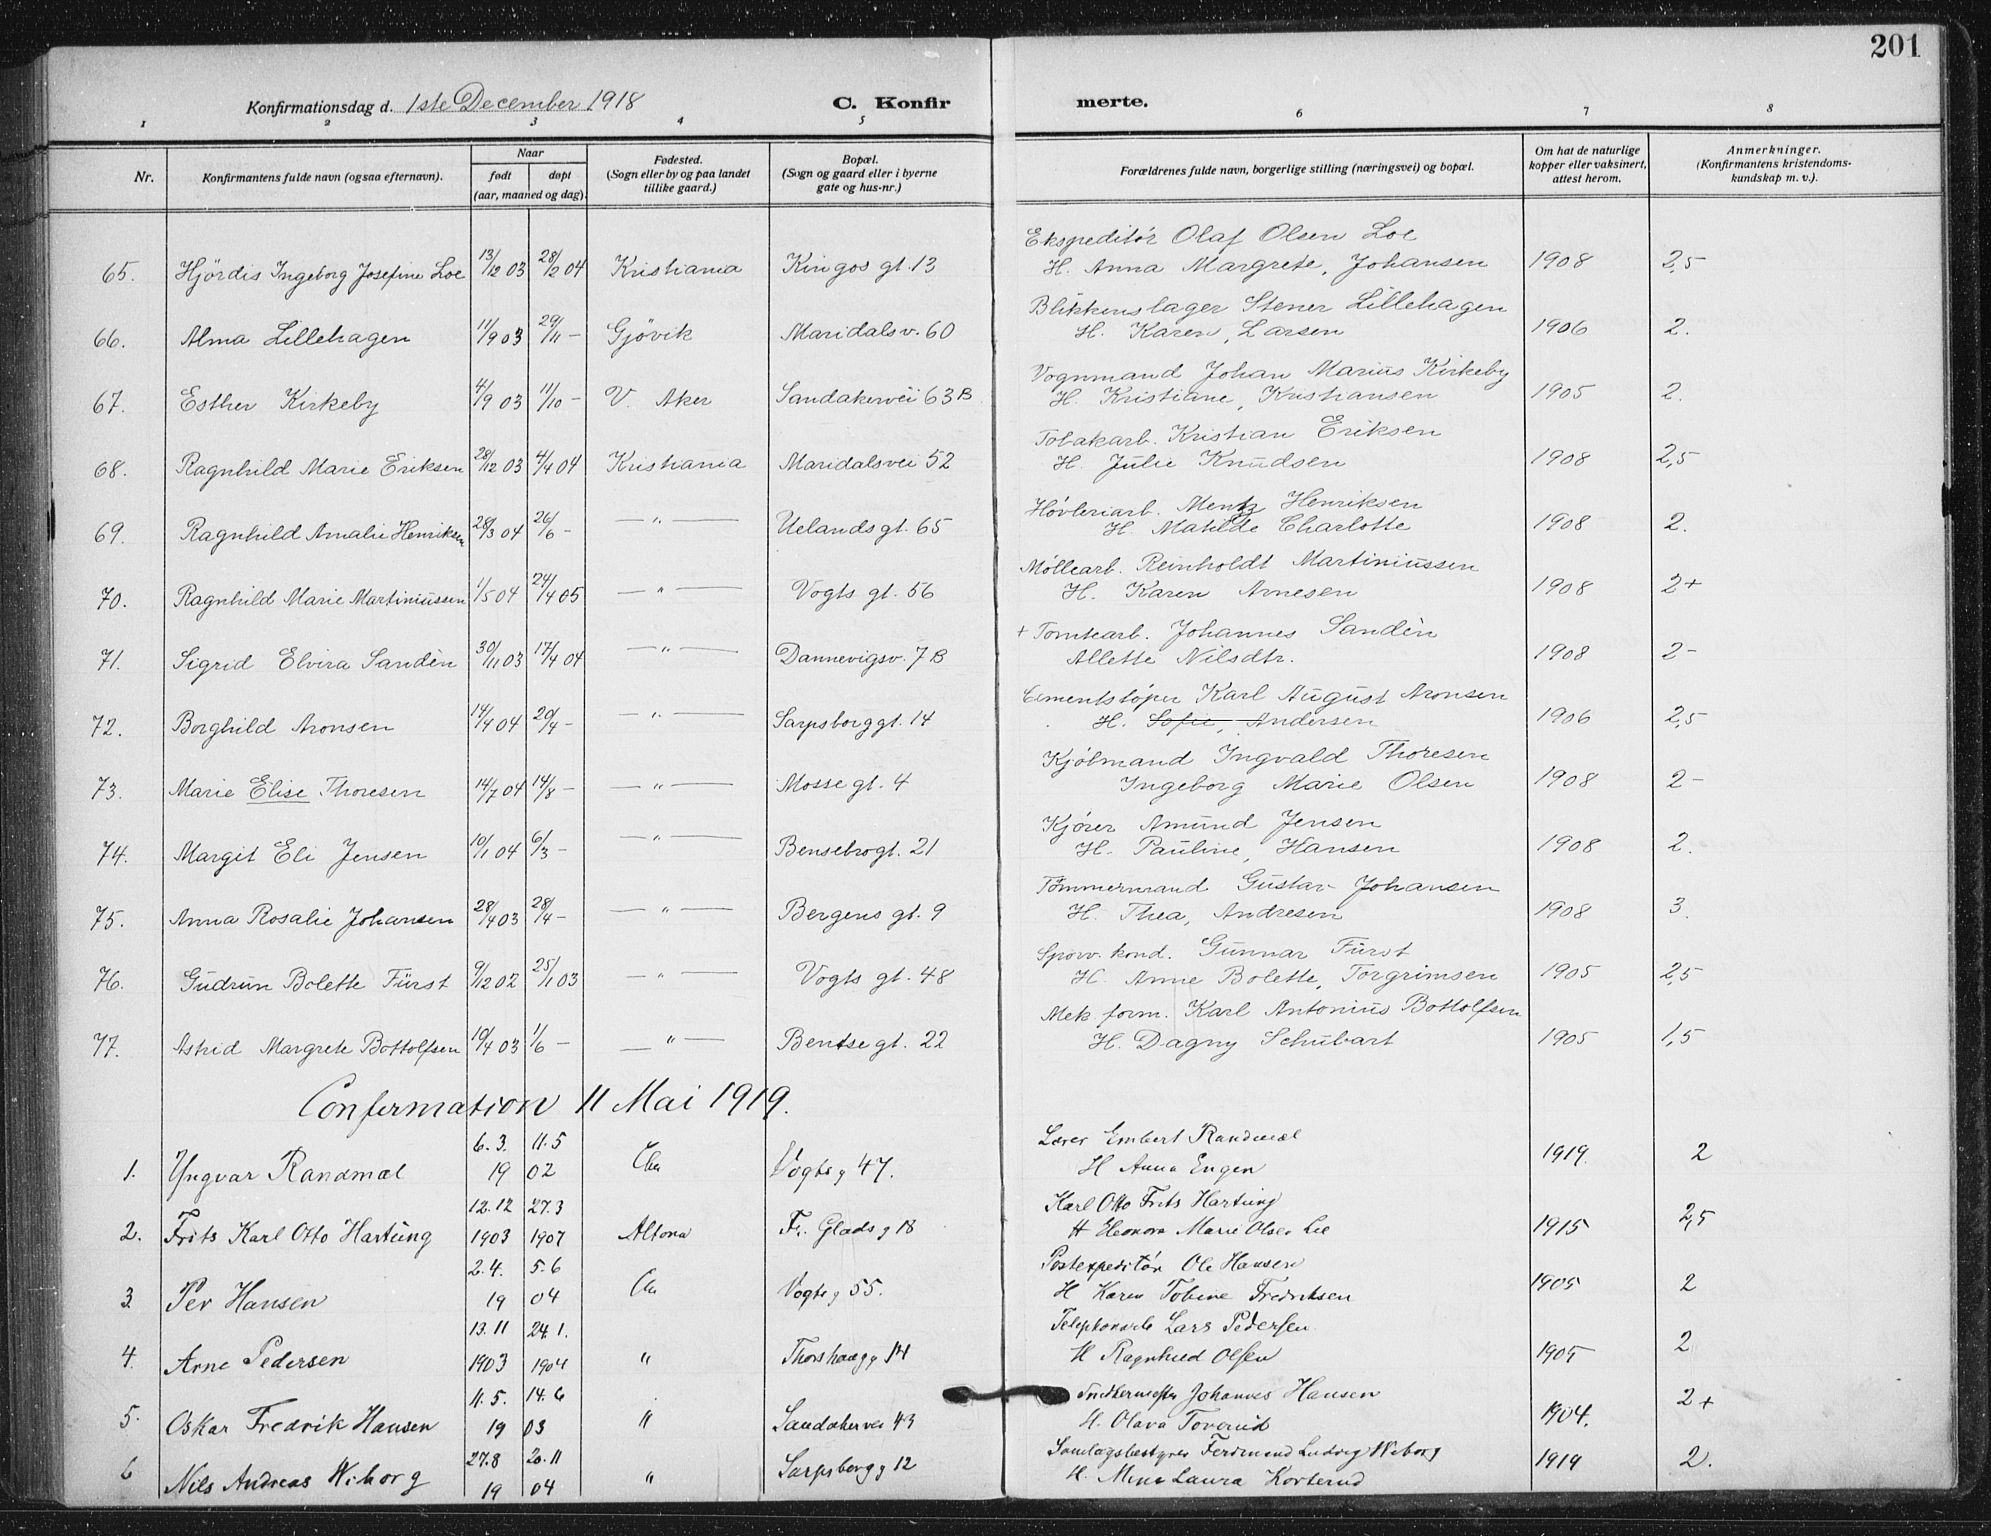 201
Konfirmationsdag d. 1ste December 1918 C. Konfir merte.
1 2 3 4 5 6 7 8
Nr.
Konfirmantens fulde navn (ogsaa efternavn).
Naar
født døpt
(aar, maaned og dag).
Fødested.
(Sogn eller by og paa landet
tillike gaard.)
Bopæl.
(Sogn og gaard eller i byerne
gate og hus-nr.)
Forældrenes fulde navn, borgerlige stilling (næringsvei) og bopæl.
Om hat de naturlige
kopper eller vaksinert,
attest herom.
Anmerkninger.
(Konfirmantens kristendoms-
kundskap m. v.).
Ekspeditør Olaf Olsen Loe
65. Hjördis Ingeborg Josefine Loe 13/12 03 28/2 04 Kristiania Kingos gt. 13 H. Anna Margrete, Johansen 1908 2,5
Blikkenslager Stener Lillehagen
66. Alma Lillehagen 11/9 03 29/11 - Gjövik Maridalsv. 60 H. Karen, Larsen 1906 2.
Vognmand Johan Marius Kirkeby
67. Esther Kirkeby 4/9 03 11/10 - V. Aker Sandakervei 63 B H. Kristiane, Kristiansen 1905 2.
Tobakarb. Kristian Eriksen
68. Ragnhild Marie Eriksen 28/12 03 4/4 04 Kristiania Maridalsvei 52 H. Julie Knudsen 1908 2,5
Høvleriarb. Mentz Henriksen
69. Ragnhild Amalie Henriksen 28/3 04 26/6 - — " — Uelandsgt. 65 H. Matilde Charlotte 1908 2.
Møllearb. Reinholdt Martiniussen
70. Ragnhild Marie Martiniussen 1/5 04 24/4 05 — " — Vogts gt. 56 H. Karen Arnesen 1908 2+
+ Tomtearb. Johannes Sandèn
71. Sigrid Elvira Sandèn 30/11 03 17/4 04 — " — Dannevigsv. 7 B Allette Nilsdtr. 1908 2-
Cementstøper Karl August Aronsen
72. Borghild Aronsen 14/4 04 20/4 - — " — Sarpsborggt. 14 H. Sofie, Andersen 1906 2,5
Kjøbmand Ingvald Thoresen
73. Marie Elise Thoresen 14/7 04 14/8 - — " — Mosse gt. 4 Ingeborg Marie Olsen 1908 2-
Kjører Amund Jensen
74. Margit Eli Jensen 10/1 04 6/3 - — " — Bensebrogt. 21 H. Pauline, Hansen 1908 2.
Tømmermand Gustav Johansen
75. Anna Rosalie Johansen 28/4 03 28/4 - — " — Bergens gt. 9 H. Thea, Andresen 1908 3.
Sporv. kond. Gunnar Fürst
76. Gudrun Bolette Fürst 9/12 02 25/1 03 — " — Vogts gt. 48 H. Anne Bolette, Torgrimsen 1905 2,5
Mek. form. Karl Antonius Bottolfsen
77. Astrid Margrete Bottolfsen 10/4 03 1/6 - — " — Bentse gt. 22 H. Dagny Schubart 1905 1,5
Confermation 11 Mai 1919.
6.3. 11.5 Lærer Embert Randmæl
1. Yngvar Randmæl 19 02 Chr Vogtsg 47. H Anna Engen 1919. 2
12.12 27.3 Karl Otto Frits Hartung
2. Frits Karl Otto Hartung 1903 1907 Altona Fr. Gladsg 18 H Eleonora Marie Olsen Lie 1915 2,5
2.4. 5.6 Postexpeditör Ole Hansen
3. Per Hansen 19 04 Chr Vogtsg 55. H Karen Tobine Fredriksen 1905 2
13.11 24.1. Lars Pedersen
4. Arne Pedersen 1903 1904 " Thorshaugg 14 H Ragnhild Olsen 1905 2
11.5. 14.6 Snedkermester Johannes Hansen
5. Oskar Fredrik Hansen 19 03 " Sandakervei 43 H. Olava Toverud 1904. 2+
27.8 20.11 Samlagsbestyrer Ferdinand Ludvig Wiborg
6 Nils Andreas Wiborg 19 04 " Sarpsborgg 12 H. Mina Laura Korterud 1919 2.